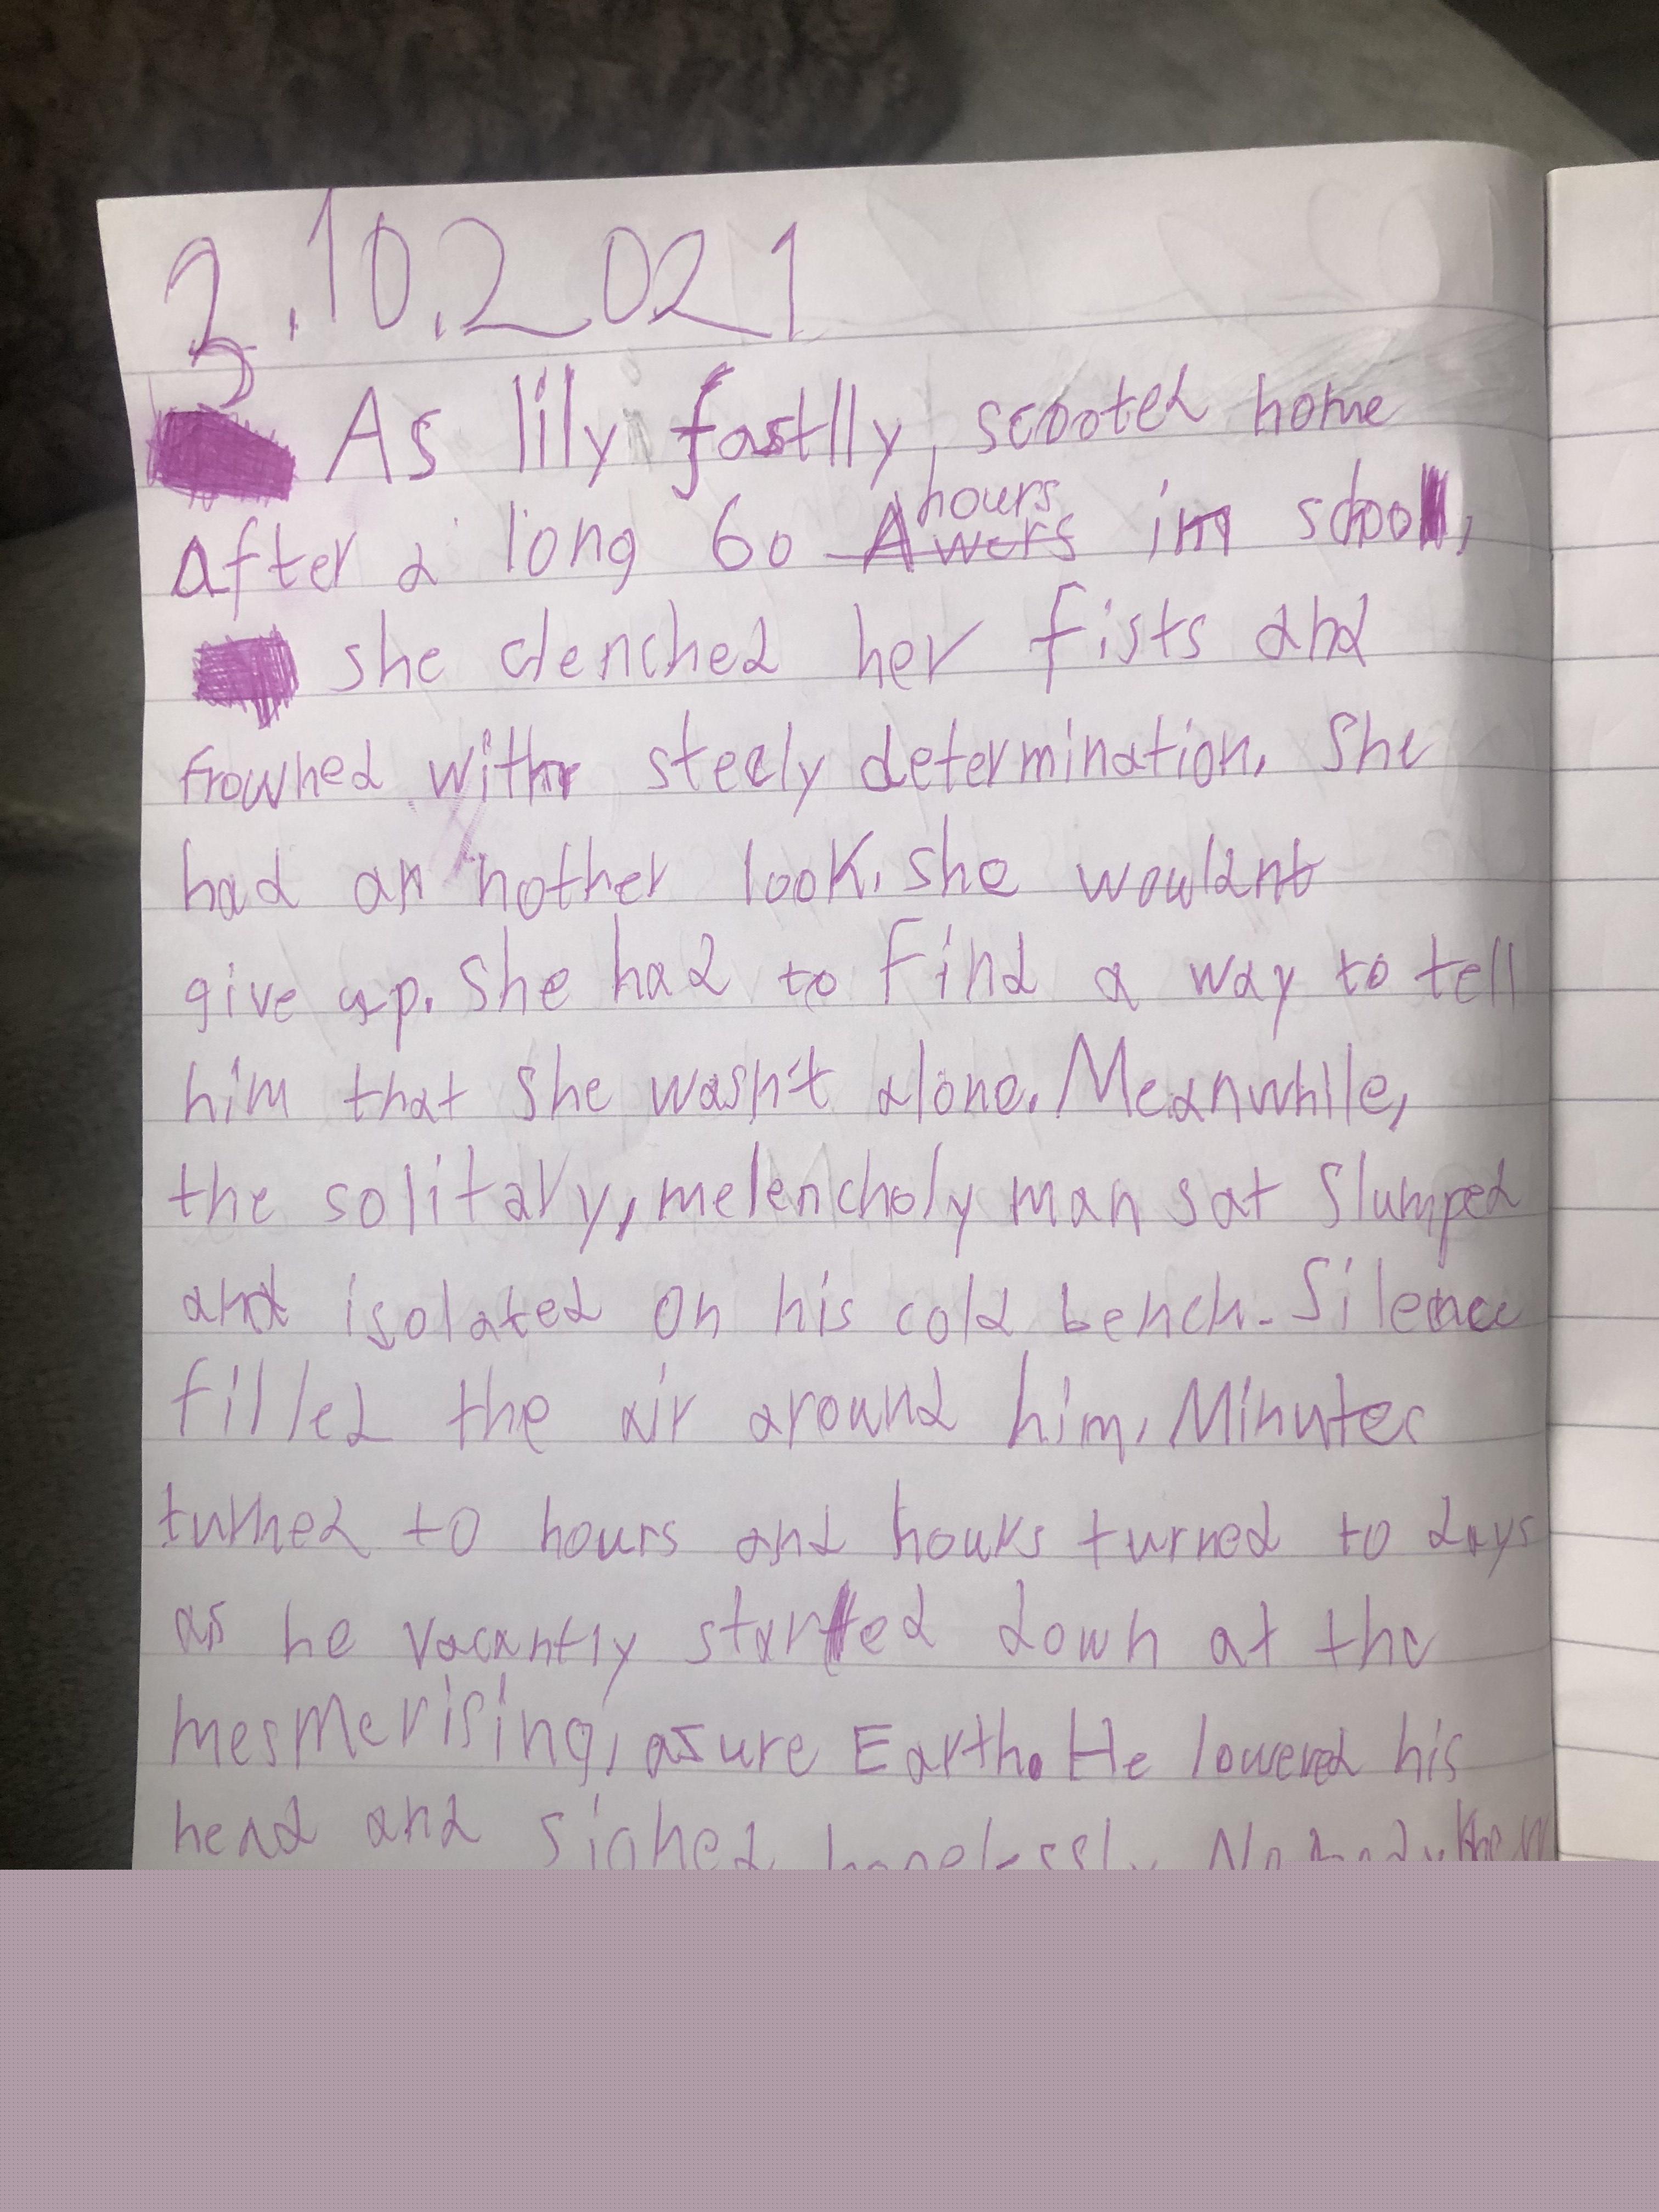 3.10.2021
As lily fastlly, scooted home
hours
After a long 60 Awers in school,
she clenched her fists and
frowned with steely determination. She
had an nother look. she wouldnt
give up. She had to find a way to tell
him that she wasn't alone. Meanwhile,
the solitary, melencholy man sat slumped
and isolated on his cold bench. Silence
filled the air around him. Minutes
turned to hours and hours turned to days
as he vacantly started down at the
mesmerising, asure Earth. He lowered his
head and sighed hopelessly. Nobody knew